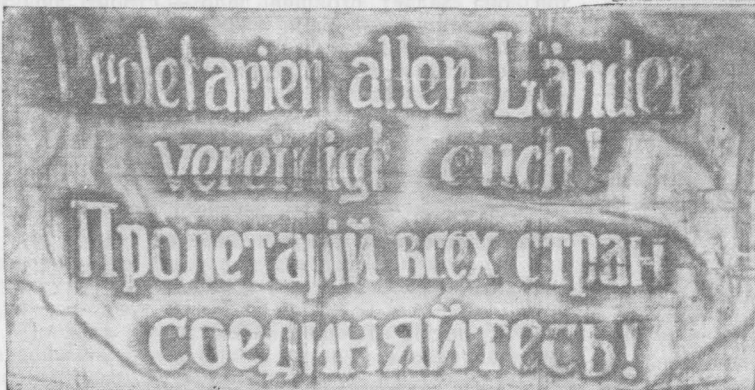 Proletarier aller Länder
vereinigt euch!
Пролетарiй всех стран
соединяйтесь!